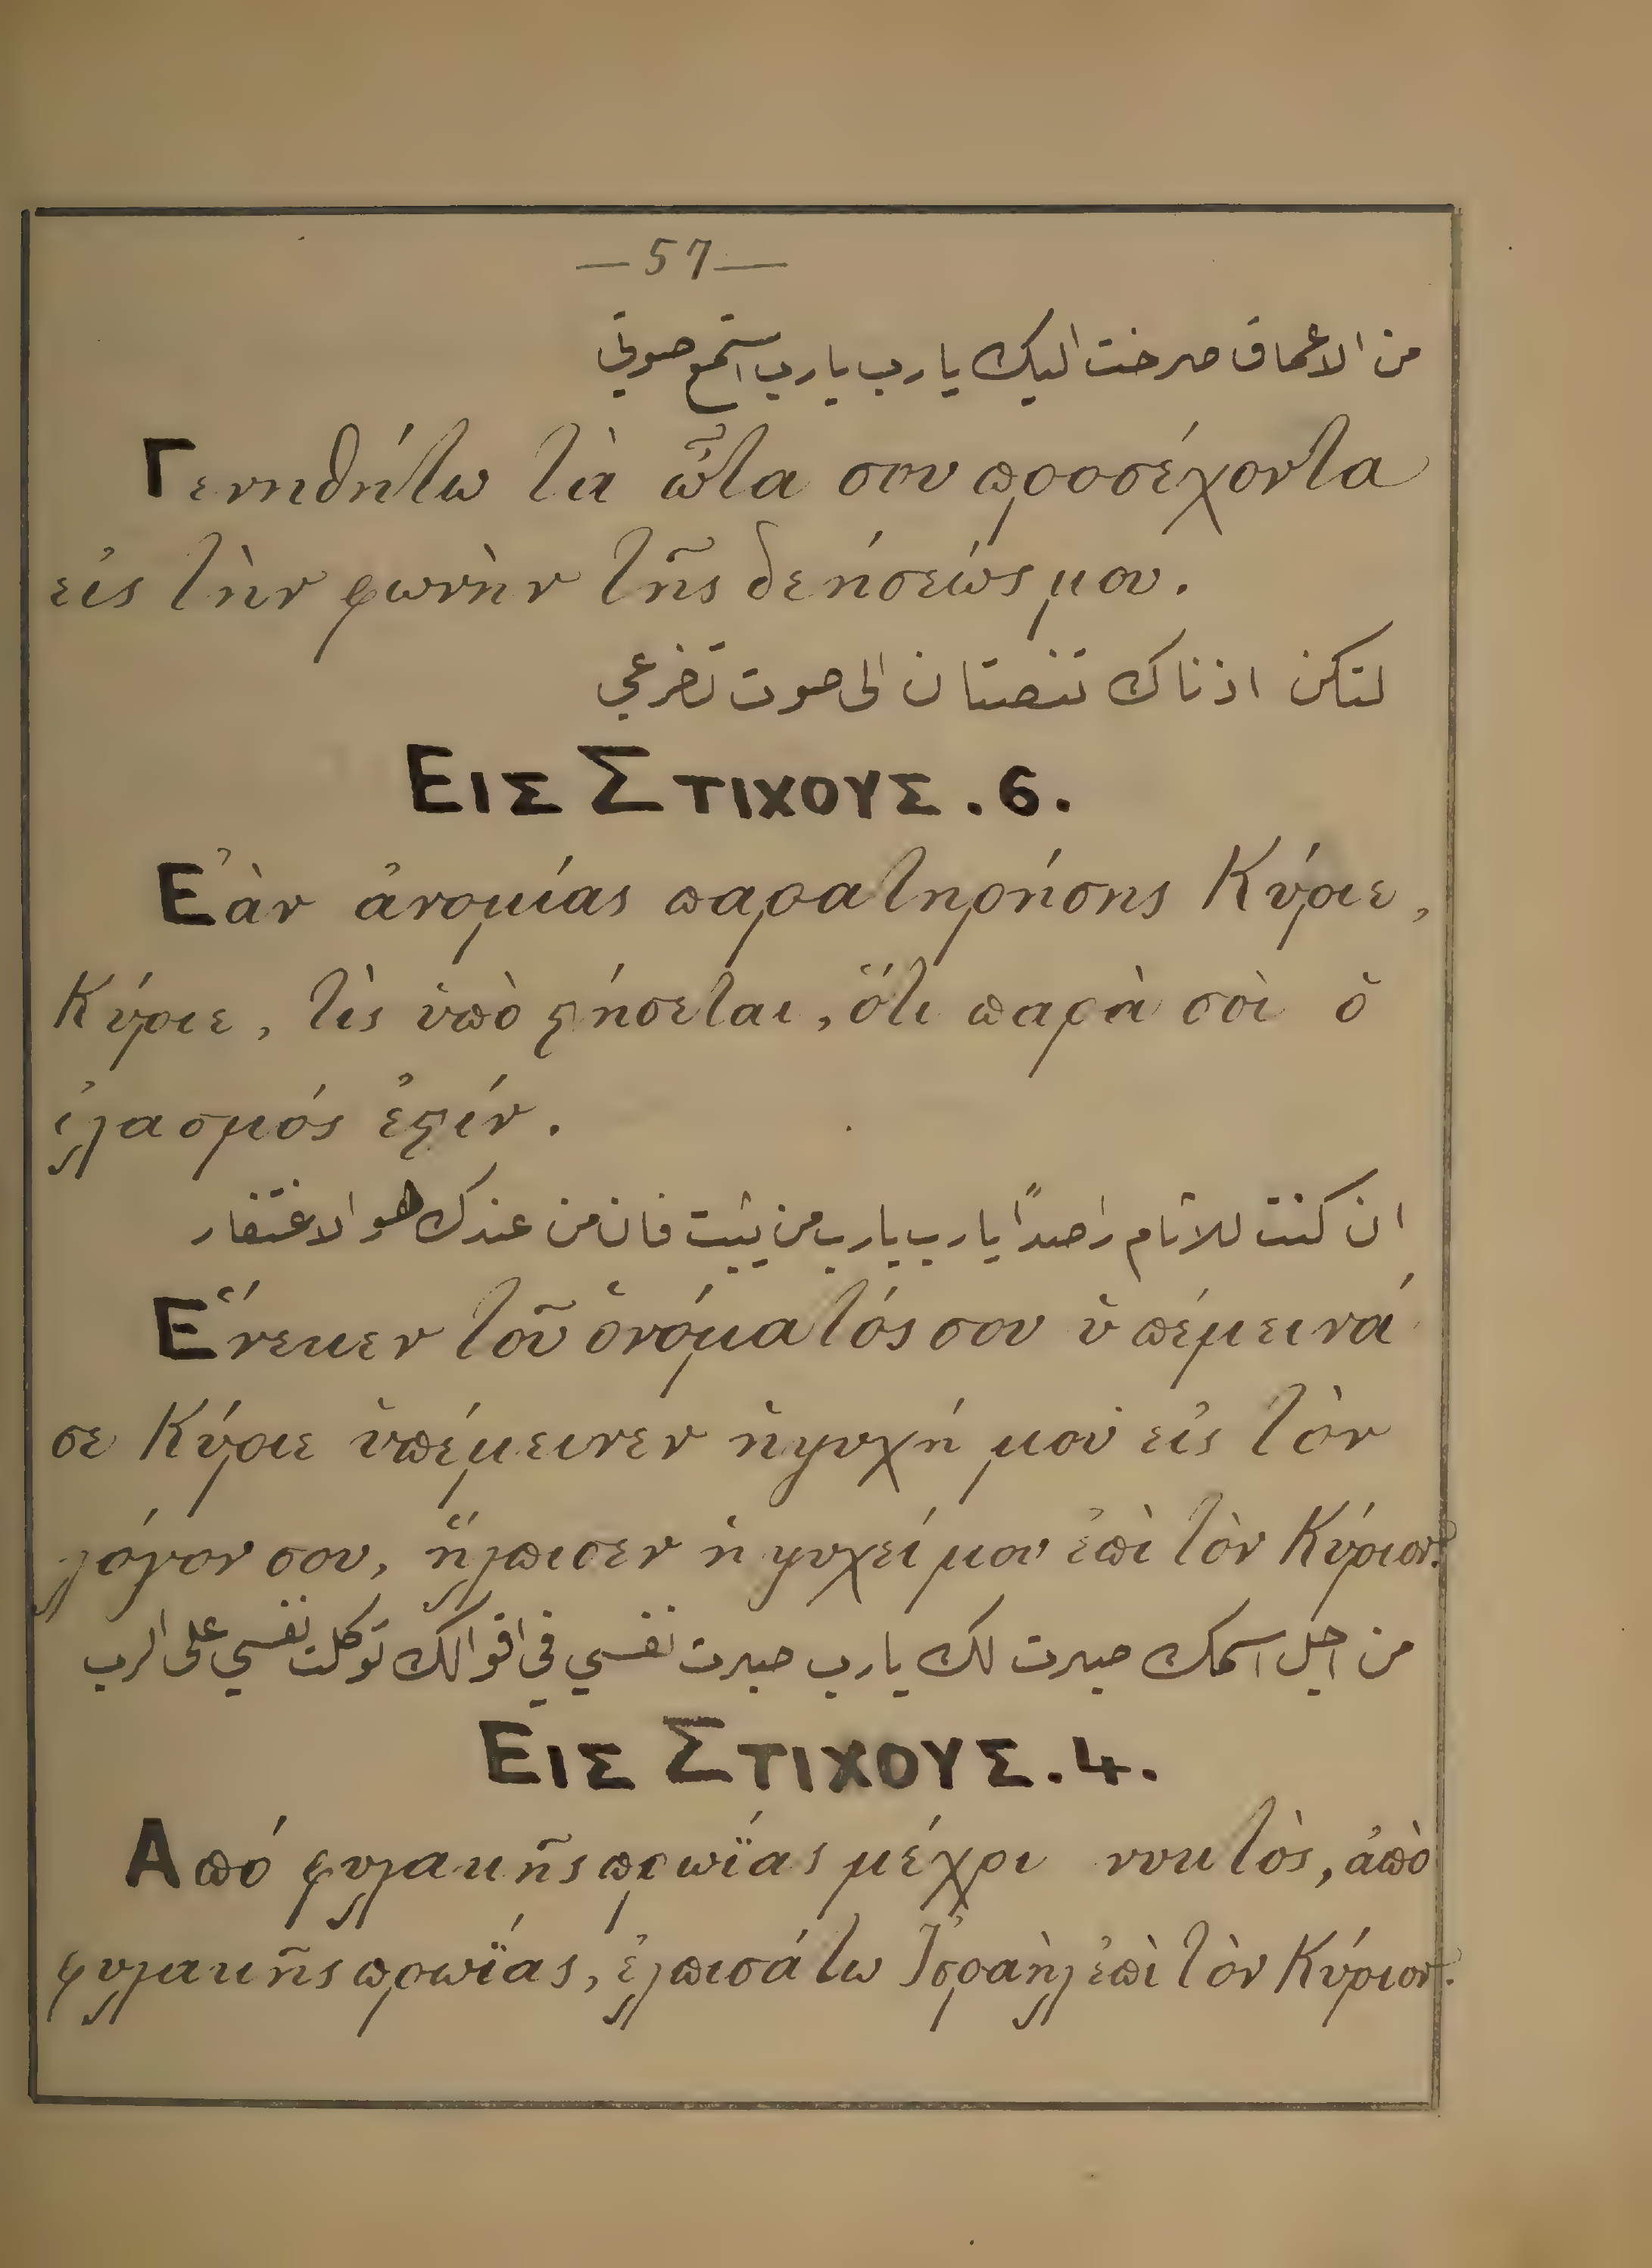 —57—
من الاعماق صرخت اليك يا رب يا رب استمع صوتي
Γενηθήτω τὰ ὦτα σου προσέχοντα
εἰς τὴν φωνὴν τῆς δεήσεώς μου.
لتكن اذناك تنصتان الى صوت تضرعي
ΕΙΣ ΣΤΙΧΟΥΣ. 6.
Ἐὰν ἀνομίας παρατηρήσης Κύριε,
Κύριε, τὶς ὑπὸ ϛήσεται, ὅτι παρὰ σοὶ ὁ
ἱλασμός ἐϛίν.
ان كنت للاثام راصدًا يا رب يا رب من يثبت فان من عندك هو الاغتفار
Ἕνεκεν τοῦ ὀνόματός σου ὑπέμεινά
σε Κύριε ὑπέμεινεν ἡ ψυχή μου εἰς τὸν
λόγον σου, ἤλπισεν ἡ ψυχεί μου ἐπὶ τὸν Κύριον.
من اجل اسمك صبرت لك يا رب صبرت نفسي في اقوالك توكلت نفسي على الرب
ΕΙΣ ΣΤΙΧΟΥΣ. 4.
Από φυλακῆς πρωΐας μέχρι νυκτὸς, ἀπὸ
φυλακῆς πρωΐας, ἐλπισάτω Ἰσραὴλ ἐπὶ τὸν Κύριον.